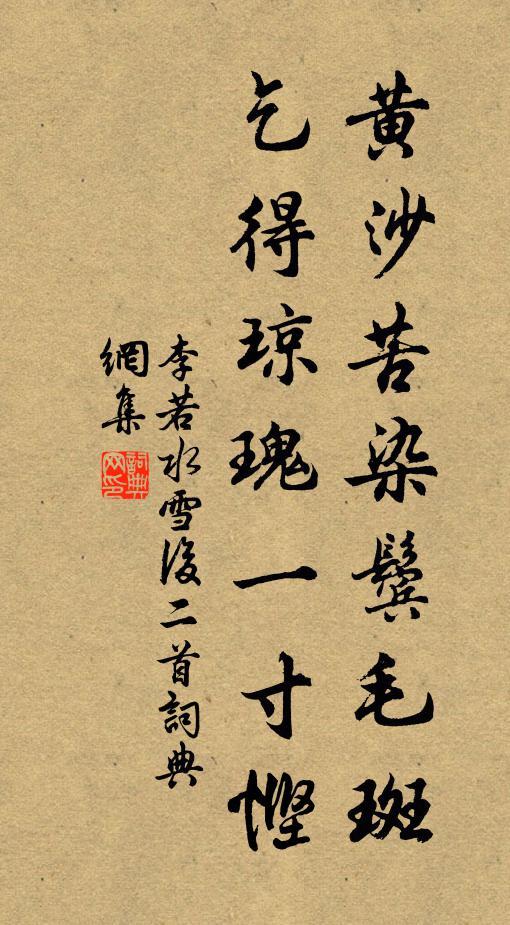 黄沙苦染鬓毛斑
乞得琼瑰一寸悭
李若水雪後二首詞典
網集
詞典网印